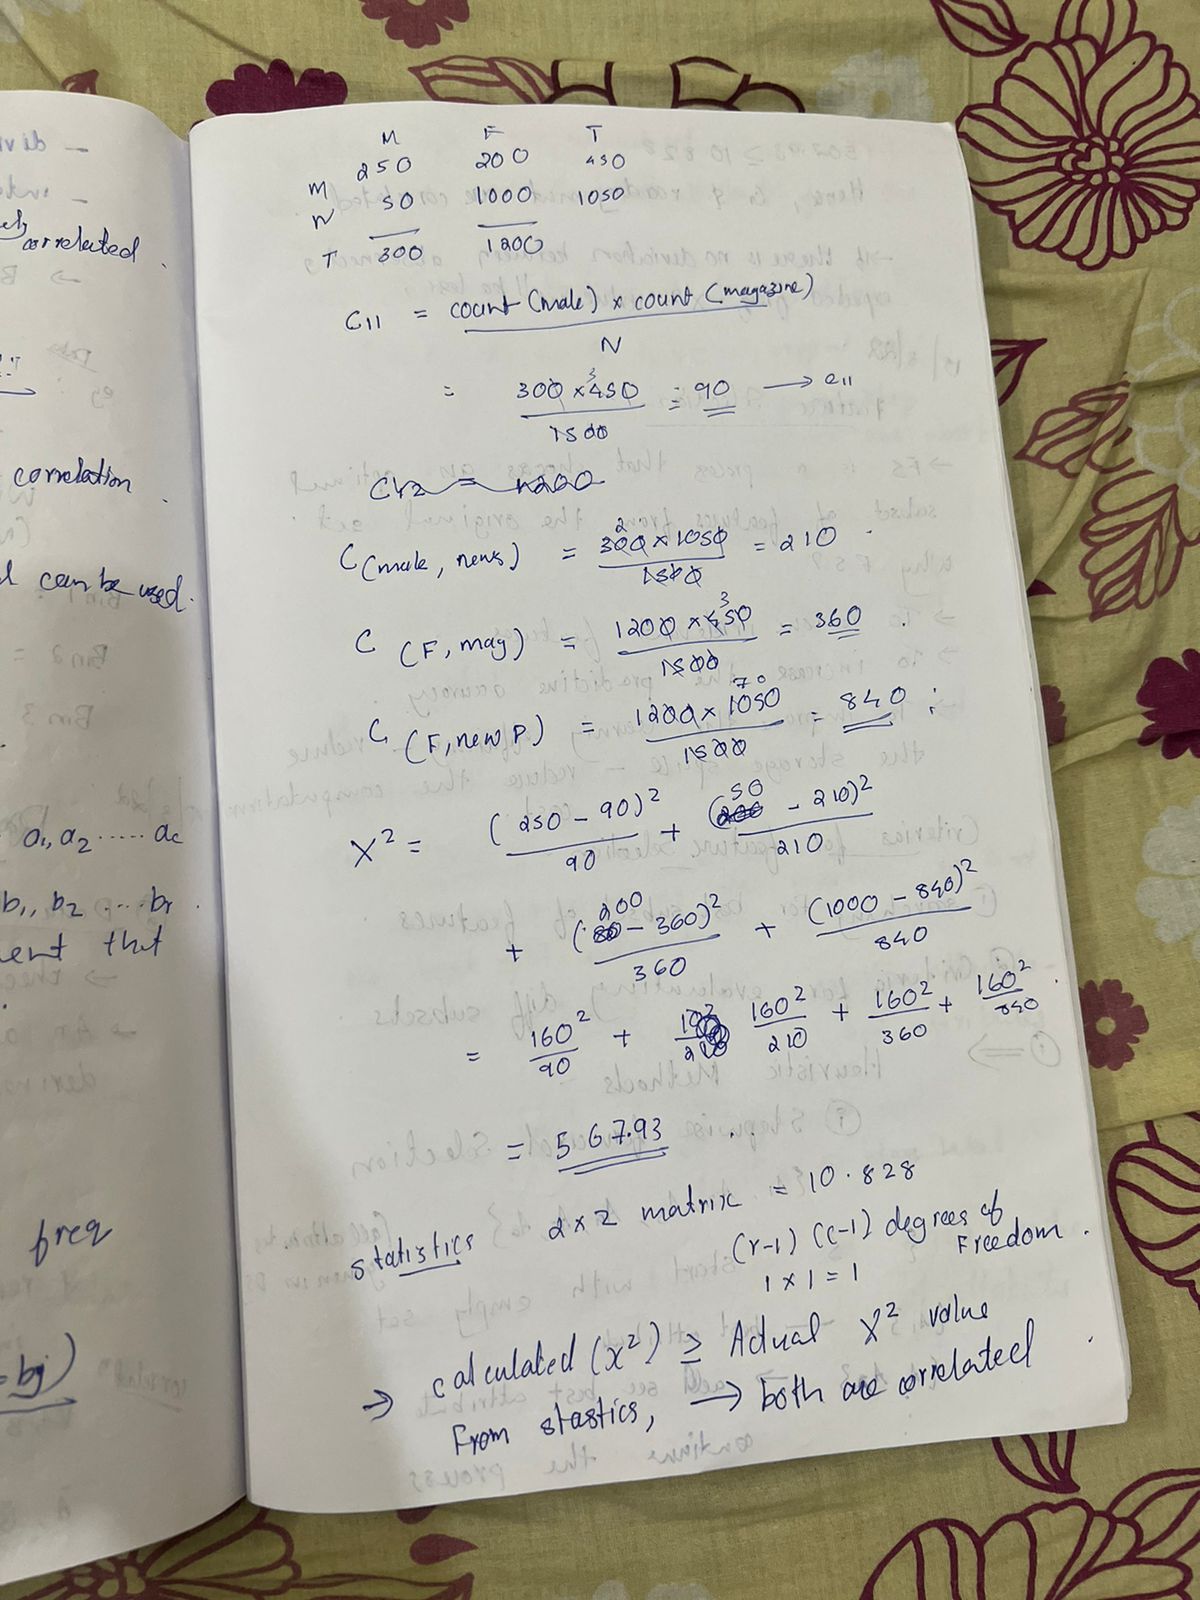 - div
correlated.
correlation.
can be used.
a1, a2 ..... ac
b1, b2 ..... br.
ent that
freq
= bj)
M F T
M 250 200 450
N 50 1000 1050
T 300 1200
C11 = count (male) x count (magazine)
N
= 300 x 450 = 90 → e11
3
1500
C12 = 1200
C(male, news) = 300 x 1050 = 210
2
1500
C (F, mag) = 1200 x 450 = 360
3
1500
C (F, new P.) = 1200 x 1050 = 840
70
1500
X² = (250 - 90)² + (50 - 210)²
90 210
+ (200 - 360)² + (1000 - 840)²
360 840
= 160² + 160² + 160² + 160²
90 210 360 840
= 567.93
statistics 2x2 matrix = 10.828
(r-1) (c-1) degrees of Freedom.
1 x 1 = 1
→ calculated (x²) ≥ Actual X² value
From stastics, → both are correlated